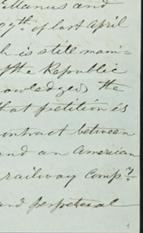 Manus and
27th of last April
h is still mani-
of the Republic
knowledges the
that petition is
contract between
and an American
railway Compy.
and perpetual